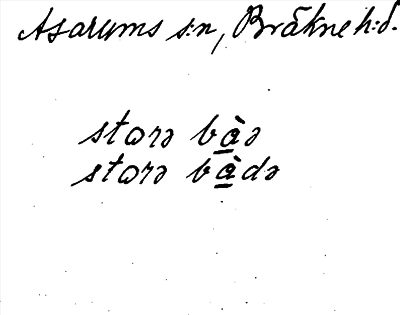 Asarums s:n, Bräkne h:d.
starə bà̲ə
starə bà̲də